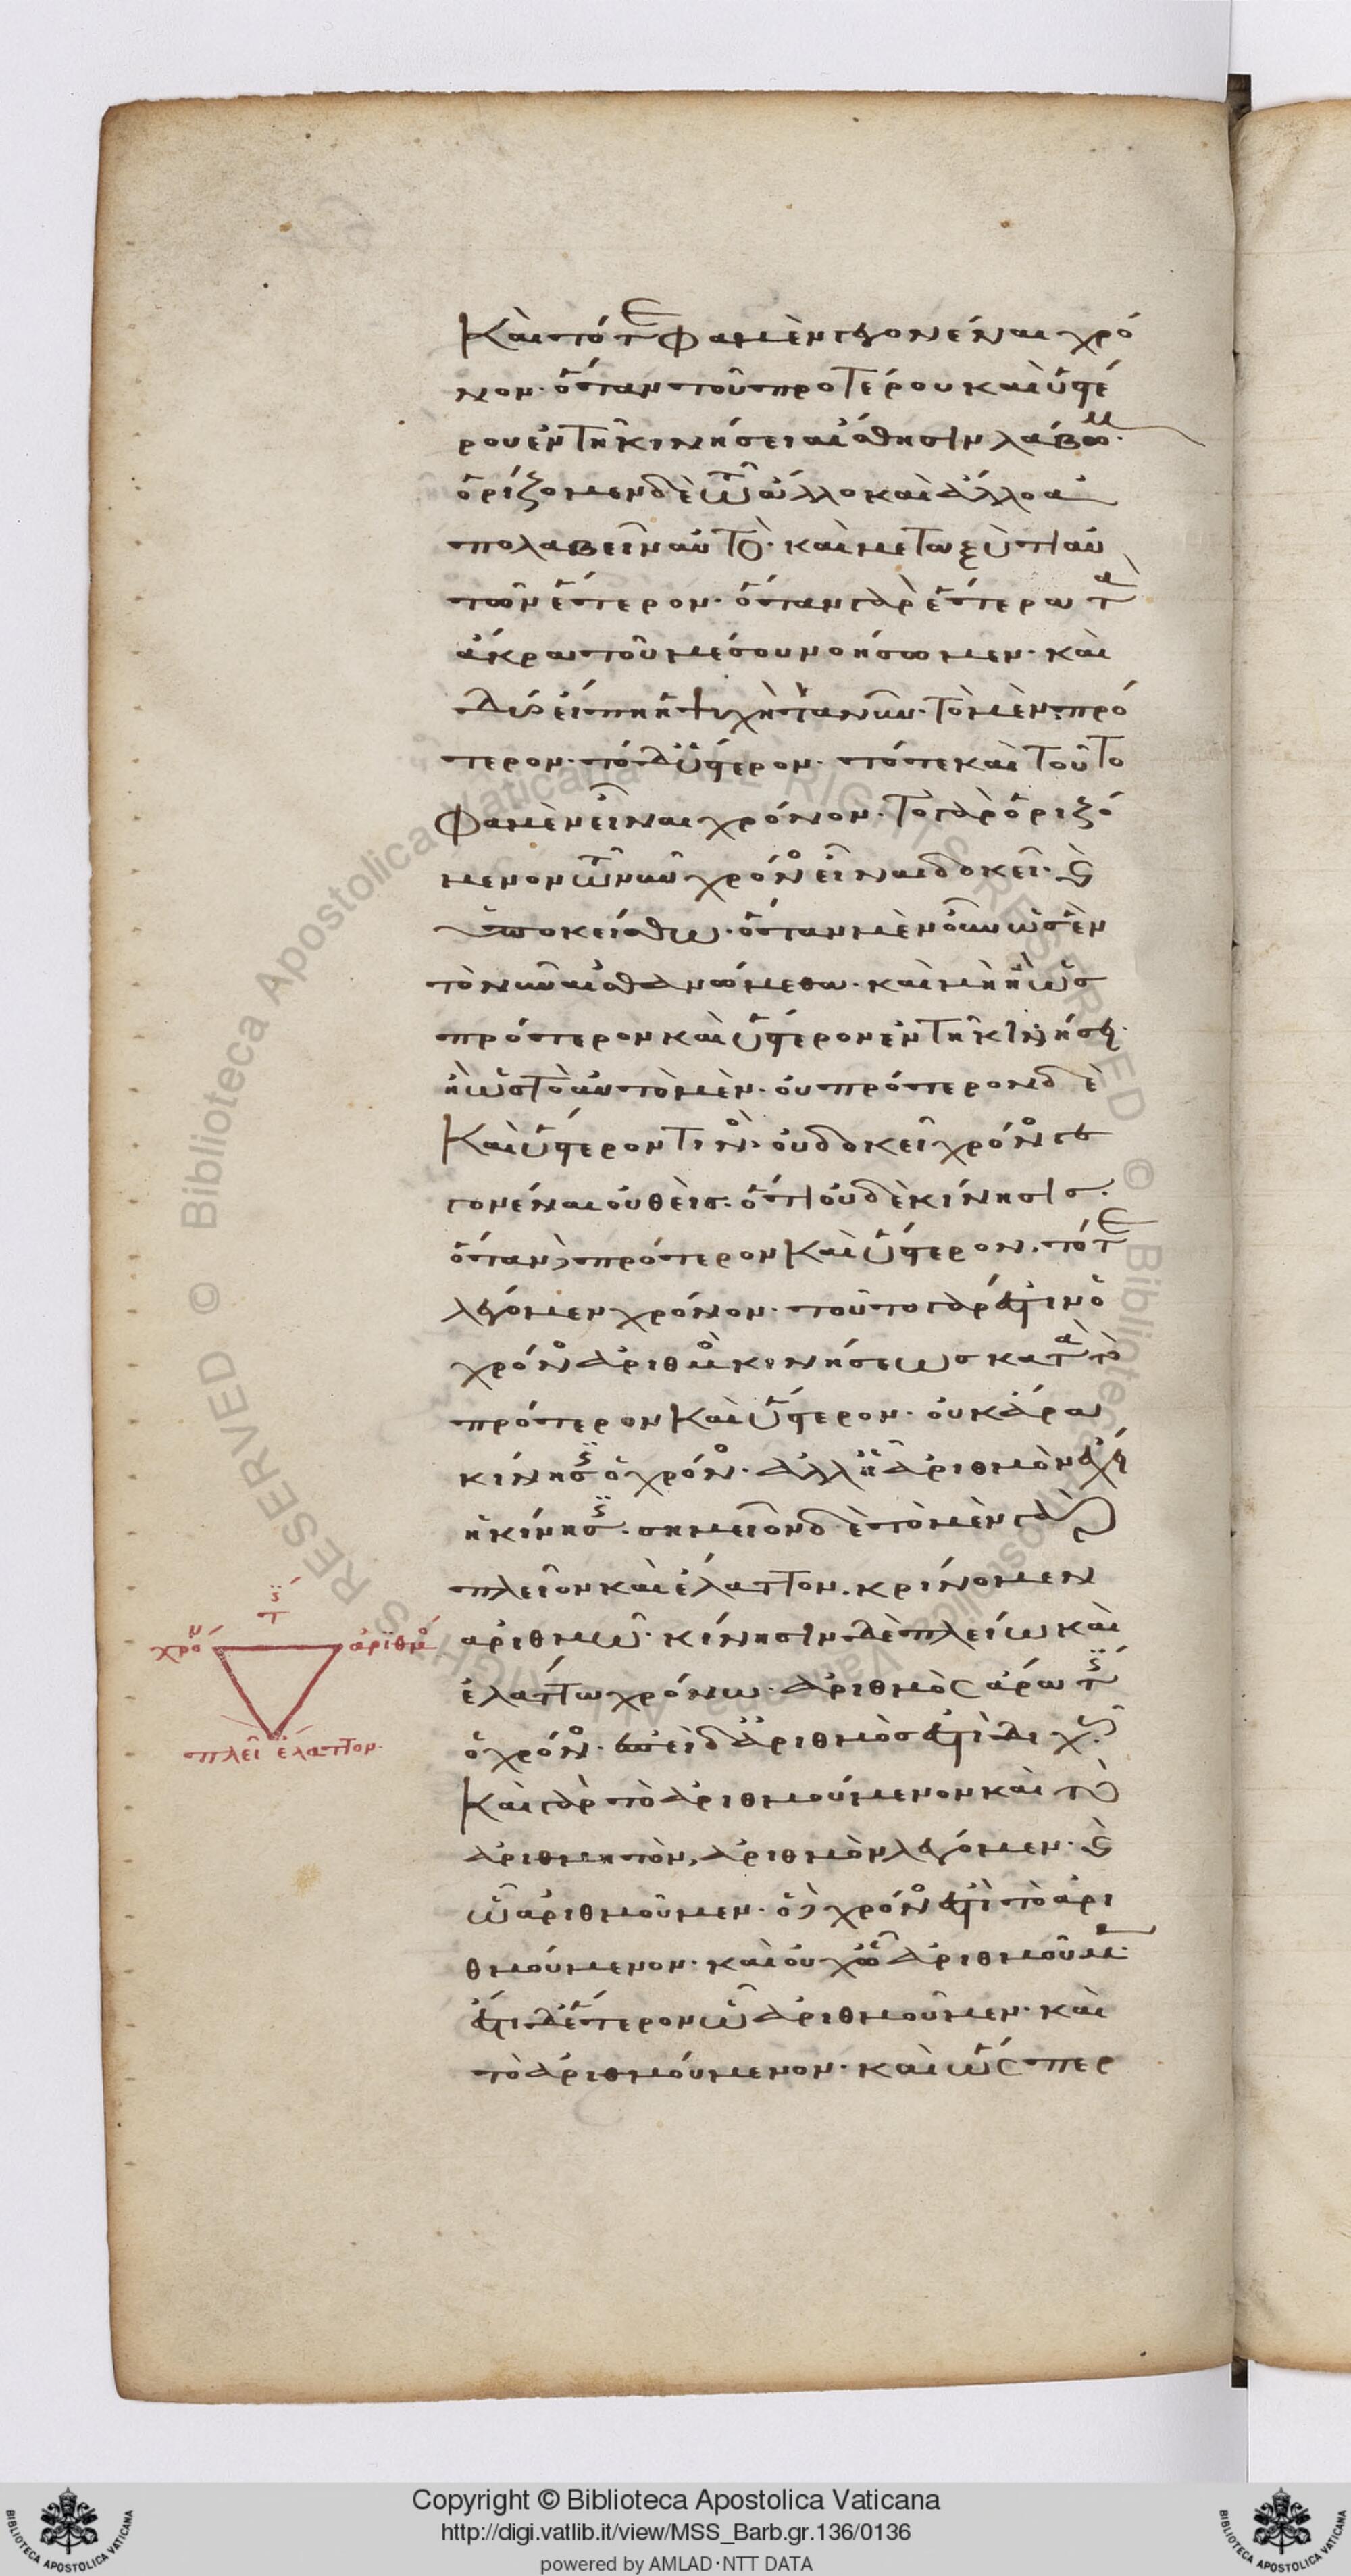 Καὶ τότε φαμὲν γεγονέναι χρό
νον· ὅταν τοῦ προτέρου καὶ ὑστέ
ρου ἐν τῆ κινήσει αἴσθησιν λάβωμ·
ὁρίζομεν δὲ τῶ ἄλλο καὶ ἄλλο ἀ
πολαβεῖν αὐτό· καὶ μεταξύ τι αὐ
τῶν ἕτερον· ὅταν γὰρ ἕτερα τὰ
ἄκρα τοῦ μέσου νοήσωμεν· καὶ
δύο εἴπη ἡ ψυχὴ τὰ νῦν· τὸ μὲν πρό
τερον· τὸ δ' ὕστερον· τότε καὶ τοῦτο
φαμὲν εἶναι χρόνον· τὸ γὰρ ὁριζό
μενον τῶ νῦν χρόν εἶναι δοκεῖ· καὶ
ὑποκείσθω· ὅταν μὲν οὖν ὡς ἓν
τὸ νῦν αἰσθανώμεθα· καὶ μὴ ἢ ὡς
πρότερον καὶ ὕστερον ἐν τῆ κινήσει·
ἢ ὡς τὸ αὐτὸ μὲν· οὐ πρότερον δὲ
Καὶ ὕστερον τινὸ· οὐ δοκεῖ χρόνο γε
γονέναι οὐθείς· ὅτι οὐδὲ κίνησις·
ὅταν δὲ πρότερον Καὶ ὕστερον· τότε
λέγομεν χρόνον· τοῦτο γάρ ἐστιν ὁ
χρόνο ἀριθμὸ κινήσεως κατὰ τὸ
πρότερον Καὶ ὕστερον· οὐκ ἄρα
κίνησ ὁ χρόνο· ἀλλ' ἧ ἀριθμὸν ἔχει
ἡ κίνησ· σημεῖον δὲ τὸ μὲν γὰρ
πλεῖον καὶ ἔλαττον· κρίνομεν
ἀριθμῶ· κίνησιν δὲ πλείω καὶ
ἐλάττω χρόνω· ἀριθμὸς ἄρα τ
ὁ χρόνο· ἐπεὶ δ' ἀριθμὸς ἐστὶ διχ
Καὶ γὰρ τὸ ἀριθμούμενον καὶ τὸ
ἀριθμητὸν, ἀριθμὸν λέγομεν· καὶ
ᾧ ἀριθμοῦμεν· ὁ δὲ χρόνο ἐστὶ τὸ ἀρι
θμούμενον· καὶ οὐχ ᾧ ἀριθμοῦμ·
ἔστι δ' ἕτερον ᾧ ἀριθμοῦμεν· καὶ
τὸ ἀριθμούμενον· καὶ ὥσπερ
χρό
ἀριθμό
πλεῖ ἔλαττον·
Copyright © Biblioteca Apostolica Vaticana
http://digi.vatlib.it/view/MSS_Barb.gr.136/0136
powered by AMLAD·NTT DATA